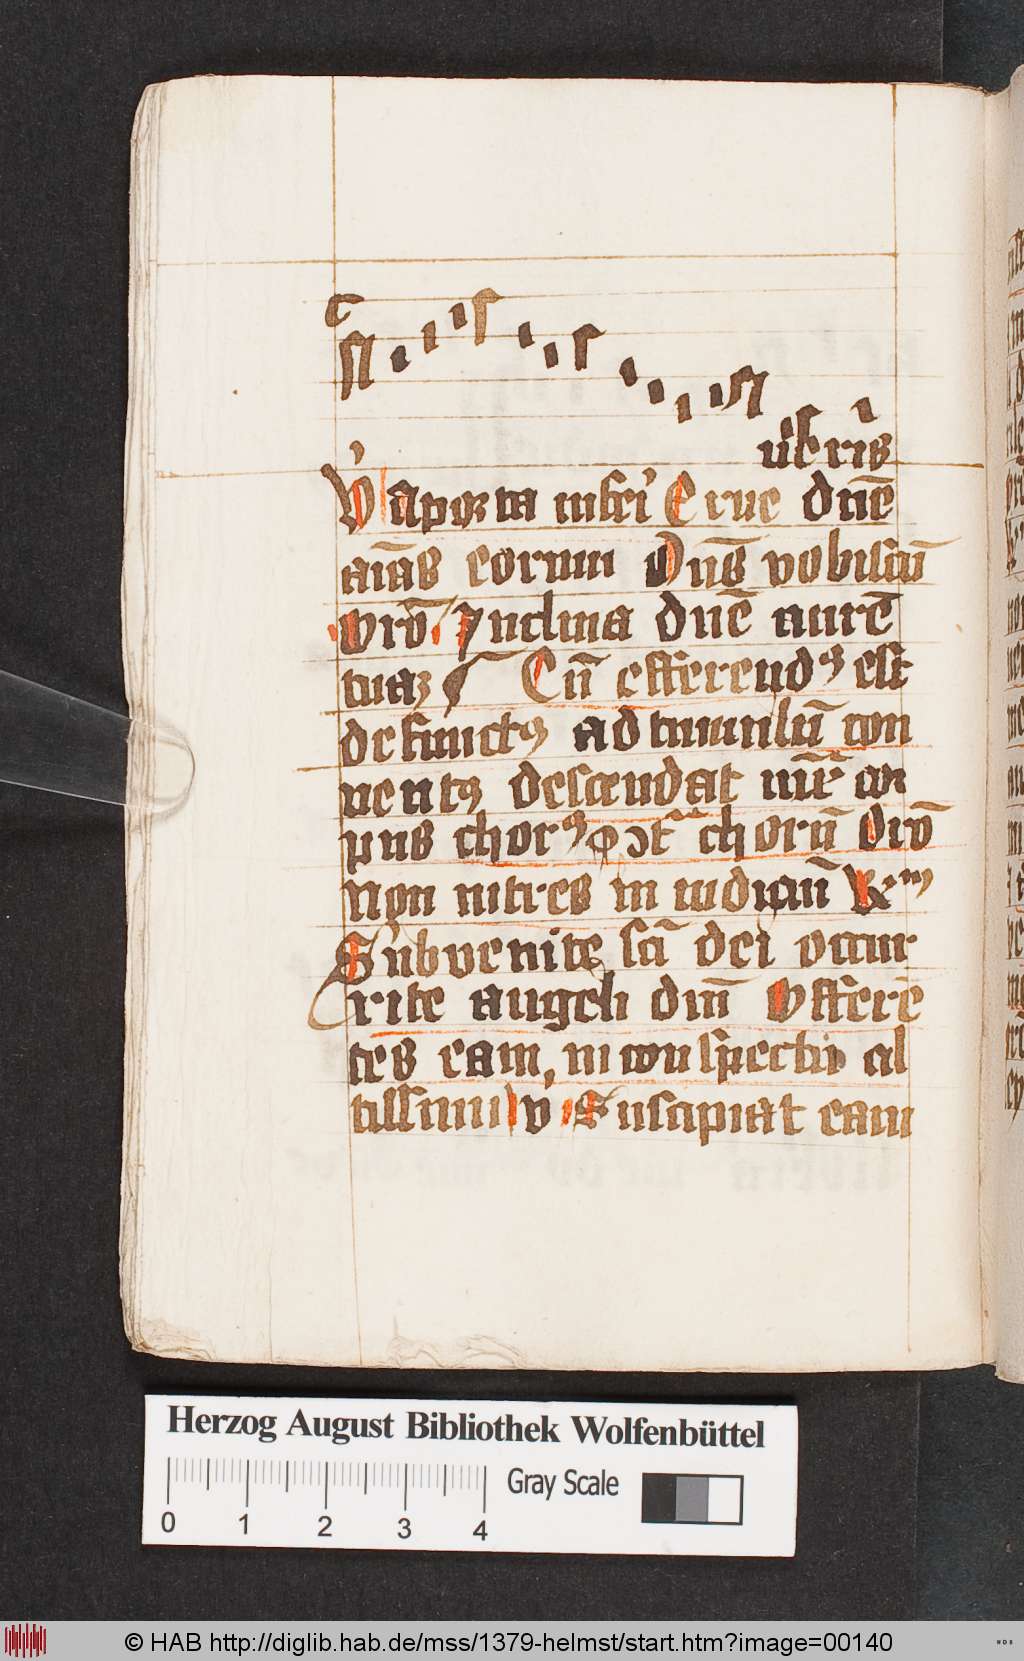 ubris
V̓ A porta inferi Erue dnē
aīas eorum Dn̄s vobiscū
Orō Inclina dnē aurē
tuaꝫ Cū efferendꝰ est
defunctꝰ ad tumulū con
uentꝰ descendat
pus chorꝰ chorū Orō
Non intres in iudiciū
Subvenite scī dei occur
rite angeli dnī Offerē
tes eam, in conspectu al
tissimi v Suscipiat eam
Herzog August Bibliothek Wolfenbüttel
Gray Scale
0 1 2 3 4
© HAB http://diglib.hab.de/mss/1379-helmst/start.htm?image=00140